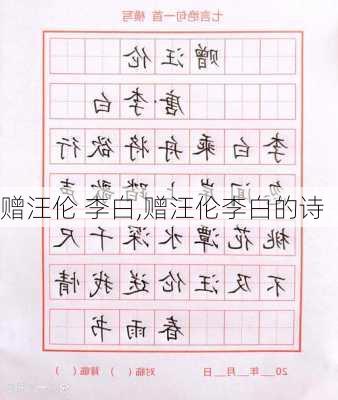 七言绝句一首 横写
赠汪伦
唐 李白
李白乘舟将欲行
忽闻岸上踏歌声
赠汪伦 李白,赠汪伦李白的诗
桃花潭水深千尺
不及汪伦送我情
春雨书
20__年__月__日 对临（ ）